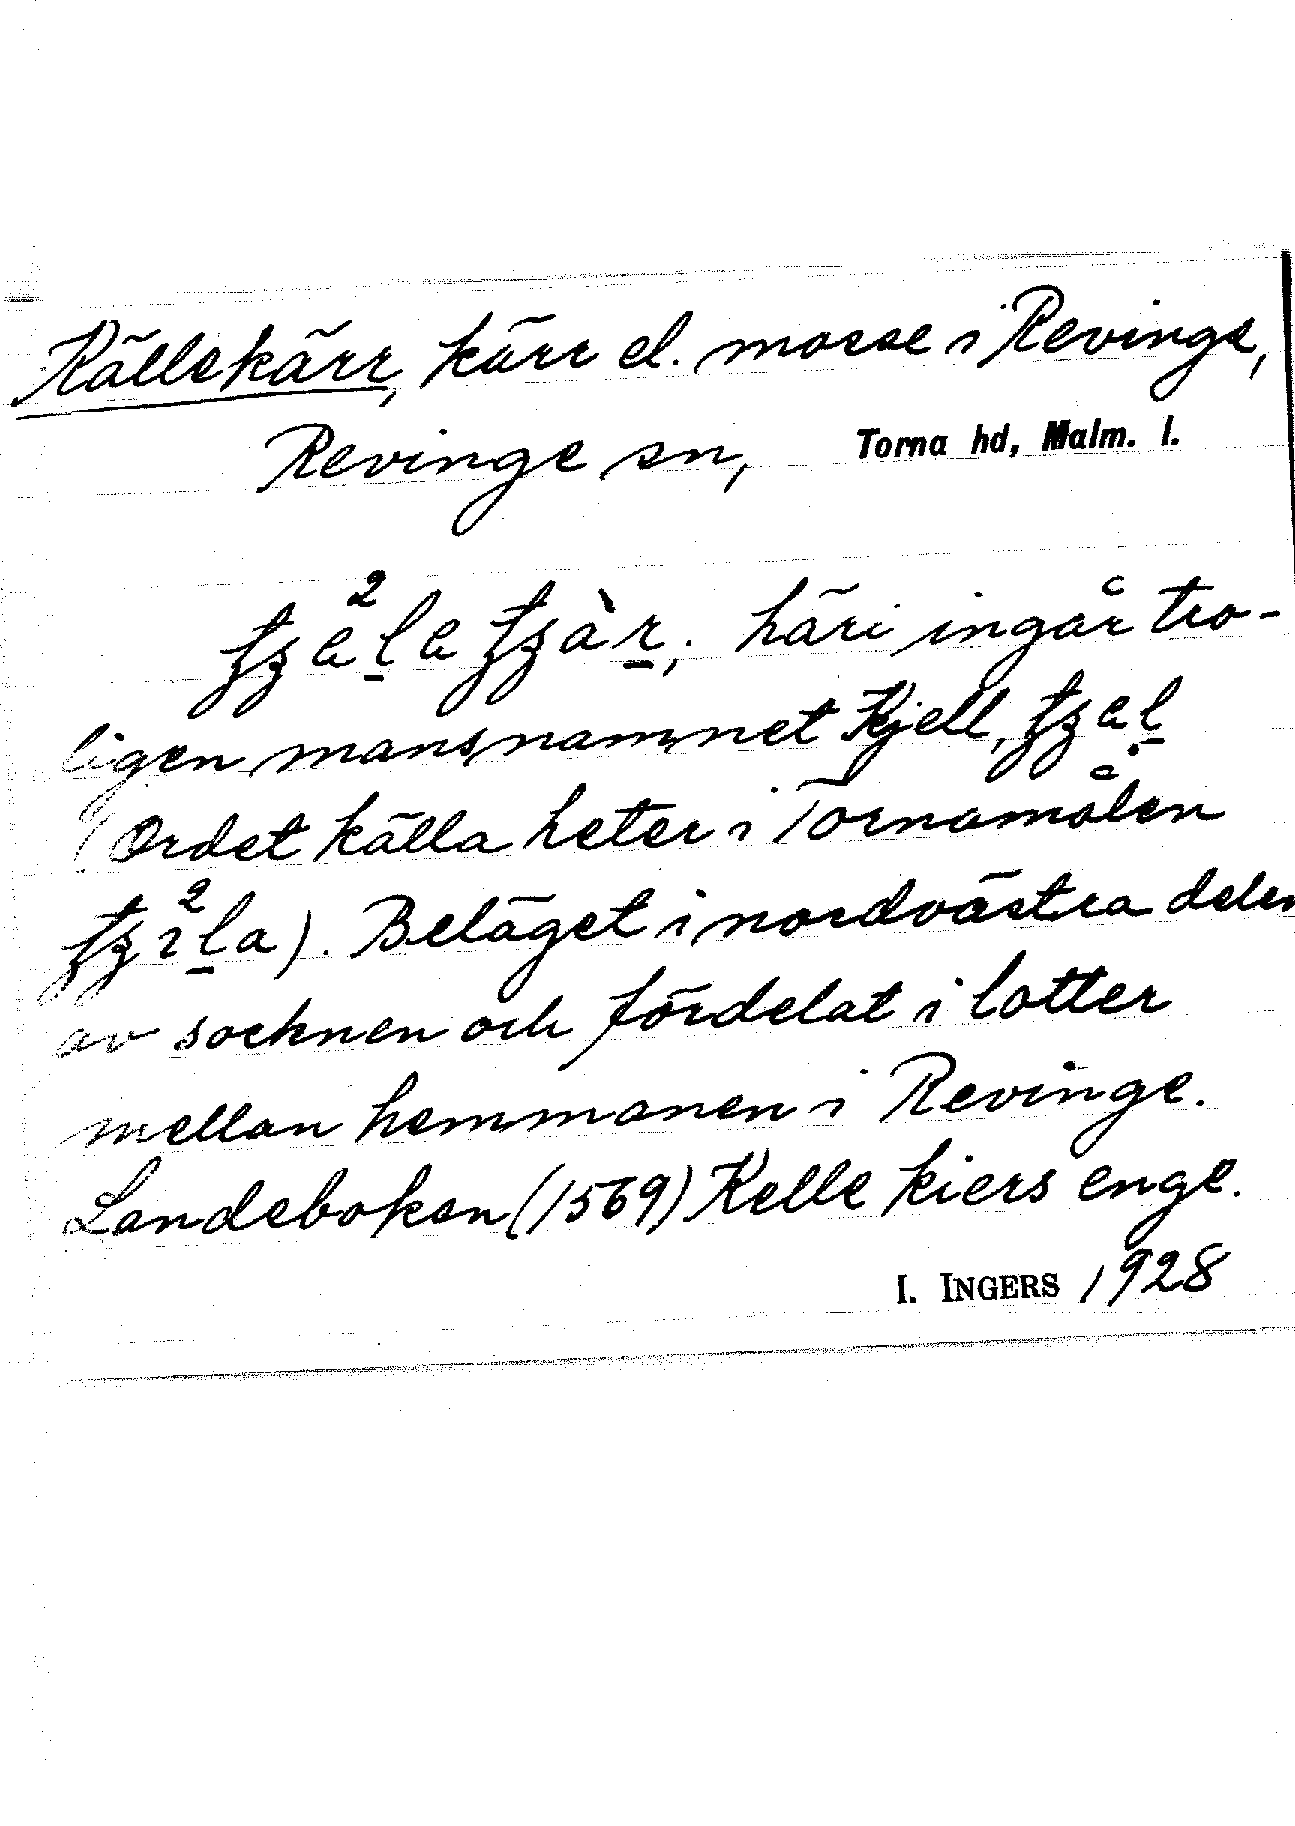 Källekärr, kärr el. mosse i Revinge,
Revinge sn, Torna hd, Malm. l.
häri ingår tro-
ligen mansnamnet Kjell,
(Ordet källa heter i Tornamålen
). Beläget i nordvästra delen
av socknen och fördelat i lotter
mellan hemmanen i Revinge.
Landeboken (1569) Kelle kiers enge.
I. INGERS 1928